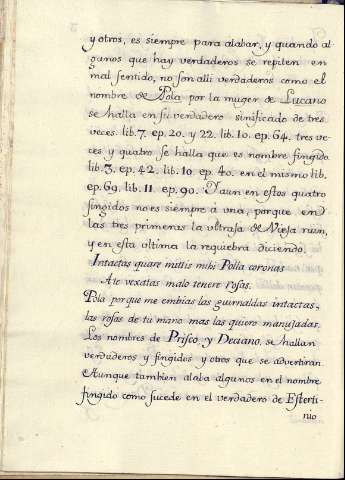 y otros, es siempre para alabar, y quando al
gunos que hay verdaderos se repiten en
mal sentido, no son alli verdaderos como el
nombre de Pola por la muger de Lucano
se halla en su verdadero sinificado de tres
veces. lib. 7. ep. 20. y 22. lib. 10. ep. 64. tres ve
ces y quatro se halla que es nombre fingido
lib. 3. ep. 42. lib. 10. ep. 40. en el mismo lib.
ep. 69. lib. 11. ep. 90. Y aun en estos quatro
fingidos no es siempre à una, porque en
las tres primeras la ultraja de Vieja ruin,
y en esta ultima la requiebra diciendo.
Intactas quare mittis mihi Polla coronas
A te vexatas malo tenere rosas.
Pola porque me embias las guirnaldas intactas,
las rosas de tu mano mas las quiero manusadas.
Los nombres de Prisco, y Deciano. se hallan
verdaderos y fingidos y otros que se advertiran.
Aunque tambien alaba algunos en el nombre
fingido como sucede en el verdadero de Esterti-
nio